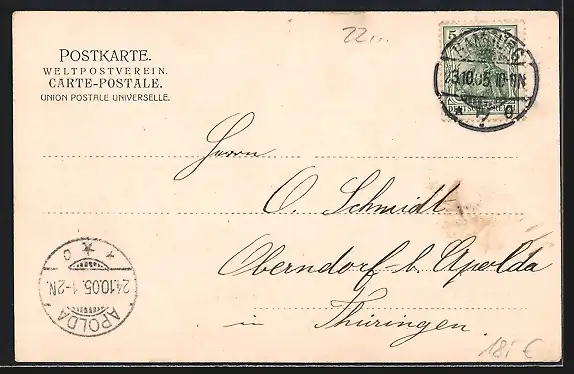 22...
POSTKARTE.
WELTPOSTVEREIN.
CARTE-POSTALE.
UNION POSTALE UNIVERSELLE.
5
23.10.05.10-11N
Herrn
O. Schmidt
Oberndorf b. Apolda
in Thüringen.
APOLDA
24.10.05.1-2N
* * c
18,- €